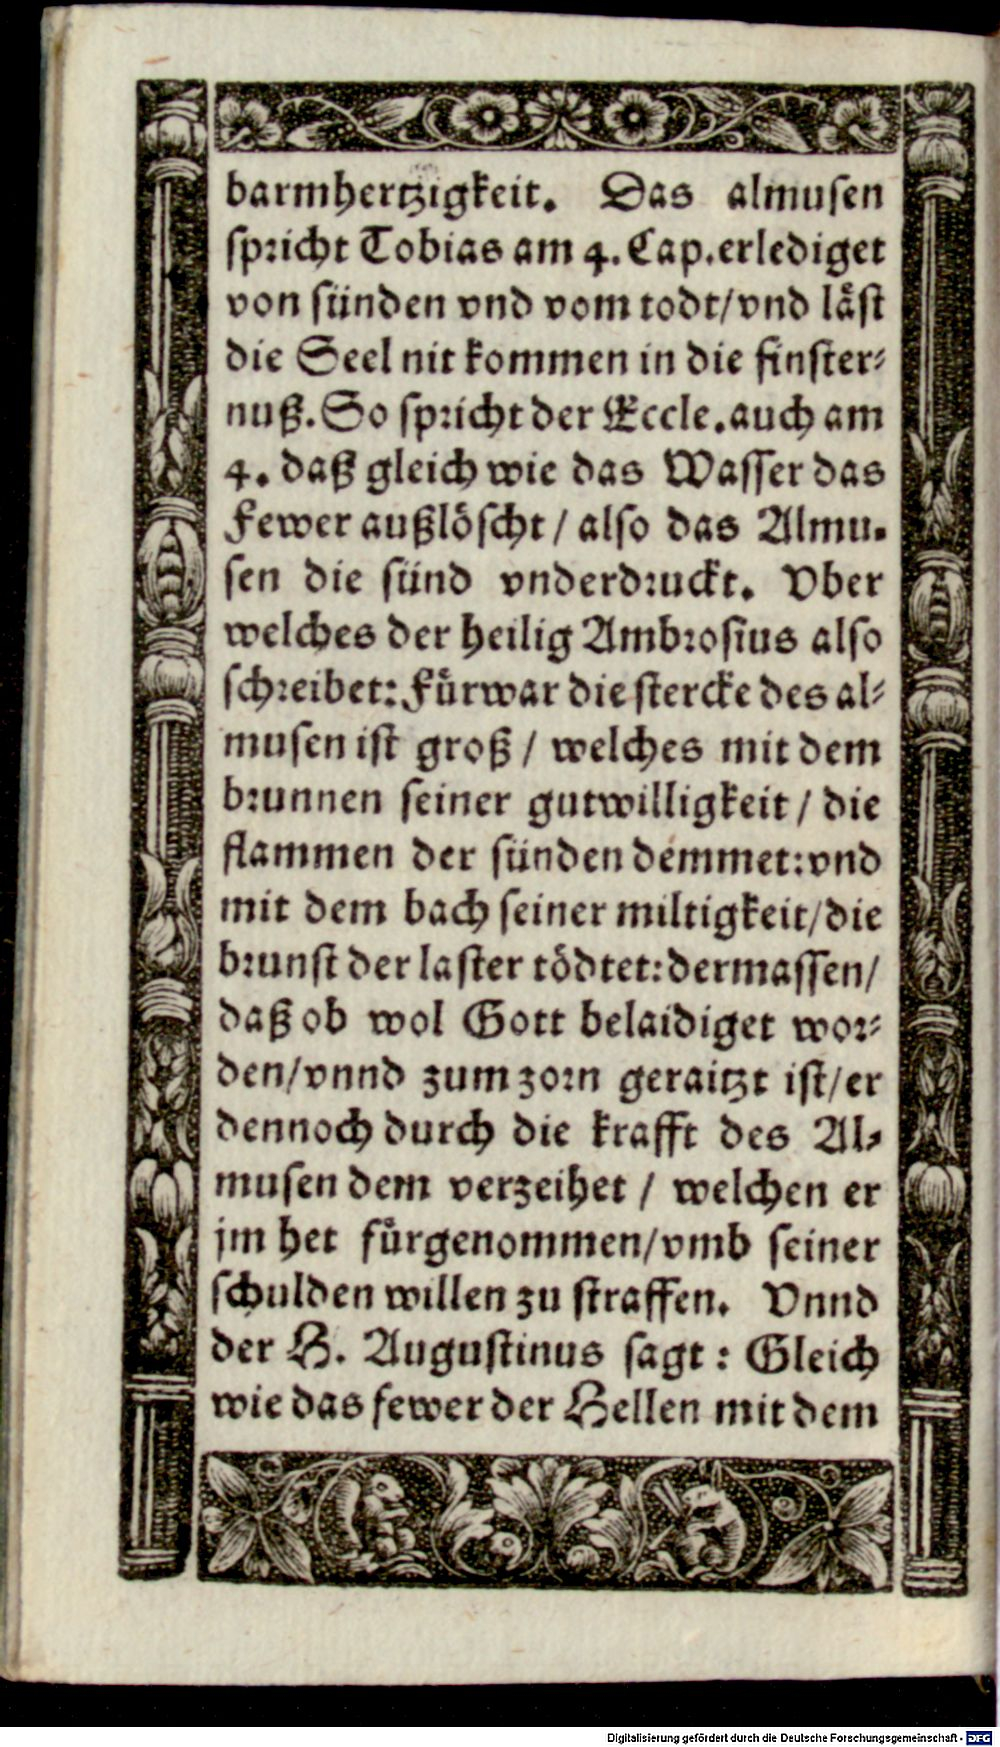 barmhertzigkeit. Das almusen
spricht Tobias am 4. Cap. erlediget
von sünden vnd vom todt/vnd läst
die Seel nit kommen in die finster-
nuß. So spricht der Eccle. auch am
4. daß gleich wie das Wasser das
Fewer außlöscht / also das Almu.
sen die sünd vnderdruckt. Vber
welches der heilig Ambrosius also
schreibet: Fürwar die stercke des al-
musen ist groß / welches mit dem
brunnen seiner gutwilligkeit / die
flammen der sünden demmet: vnd
mit dem bach seiner miltigkeit/die
brunst der laster tödtet: dermassen/
daß ob wol Gott belaidiget wor-
den/vnnd zum zorn geraitzt ist/er
dennoch durch die krafft des Al-
musen dem verzeihet / welchen er
jm het fürgenommen/vmb seiner
schulden willen zu straffen. Vnnd
der H. Augustinus sagt : Gleich
wie das fewer der Hellen mit dem
Digitalisierung gefördert durch die Deutsche Forschungsgemeinschaft - DFG